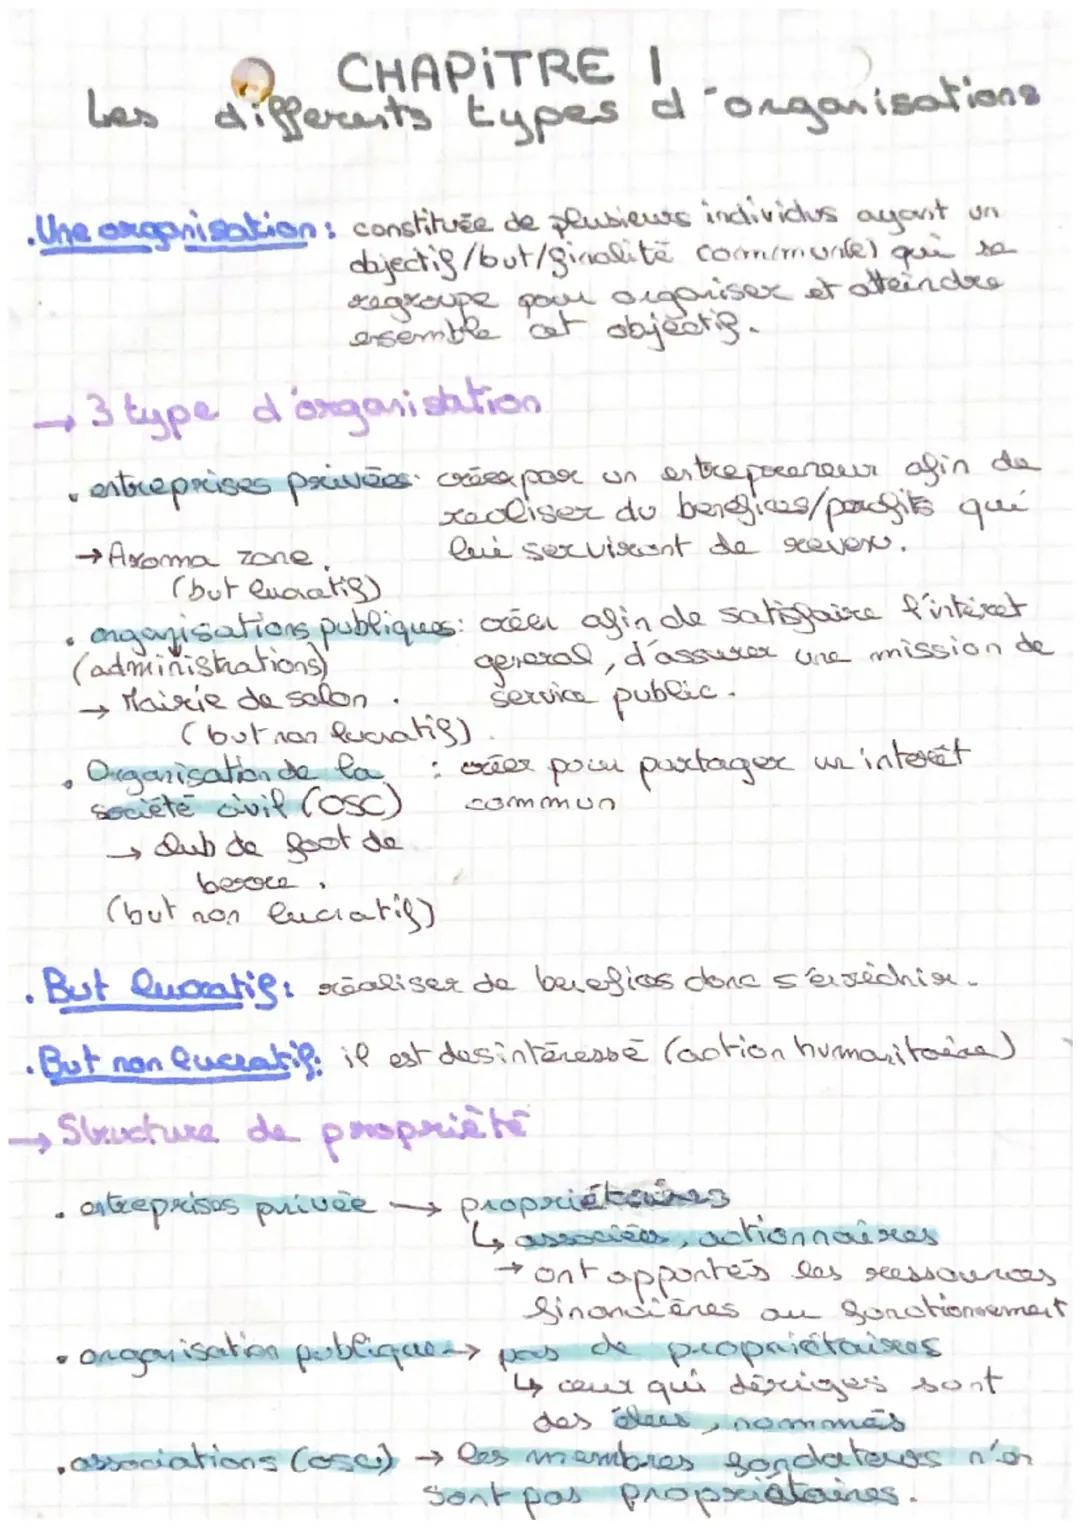 CHAPiTRE 1
Les differents types d'organisations
.Une organisation: constituée de plusieurs individus ayant un
objectif/but/finalité commun(e) qui se
regroupe pour organiser et atteindre
ensemble cet objectif.
→ 3 type d'organisation
. entreprises privées: créée par un entrepreneur afin de
realiser du benefices/profits qui
→ Aroma zone. lui serviront de revenu.
(but lucratif)
. organisations publiques: créer afin de satisfaire l'intéret
(administrations) general, d'assurer une mission de
→ Mairie de salon. service public.
(but non lucratif).
. Organisation de la : créer pour partager un interêt
société civil (OSC) commun
→ club de foot de
berre.
(but non lucratif)
. But lucratif: réaliser de benefices donc s'enrichir.
. But non lucratif: il est desintéressé (action humanitaire)
→ Structure de propriété
. entreprises privée → propriétaires
↳ associés, actionnaires
→ ont apportés les ressources
financières au fonctionnement
. organisation publique → pas de propriétaires
↳ ceux qui dériges sont
des élus, nommés
. associations (osc) → les membres fondateurs n'en
sont pas propriétaires.